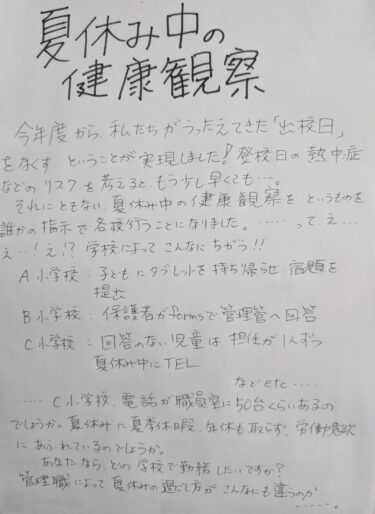 夏休み中の
健康観察
今年度から、私たちがうったえてきた「出校日」
をなくす、ということが実現しました!登校日の熱中症
などのリスクを考えると、もう少し早くても…。
それにともない、夏休み中の健康観察をというものを
誰かの指示で各校行うことになりました。……って、え…
え…!え!?学校によってこんなにちがう!!
A小学校:子どもにタブレットを持ち帰らせ宿題を
提出
B小学校:保護者がformsで管理管へ回答
C小学校:回答のない児童は担任が1人ずつ
夏休み中にTEL
などetc……
……C小学校、電話が職員室に50台くらいあるの
でしょうか。夏休みに夏季休暇、年休も取らず、労働意欲
にあふれているのでしょうか。
あなたなら、どの学校で勤務したいですか?
管理職によって夏休みの過ごし方がこんなにも違うのか
……。